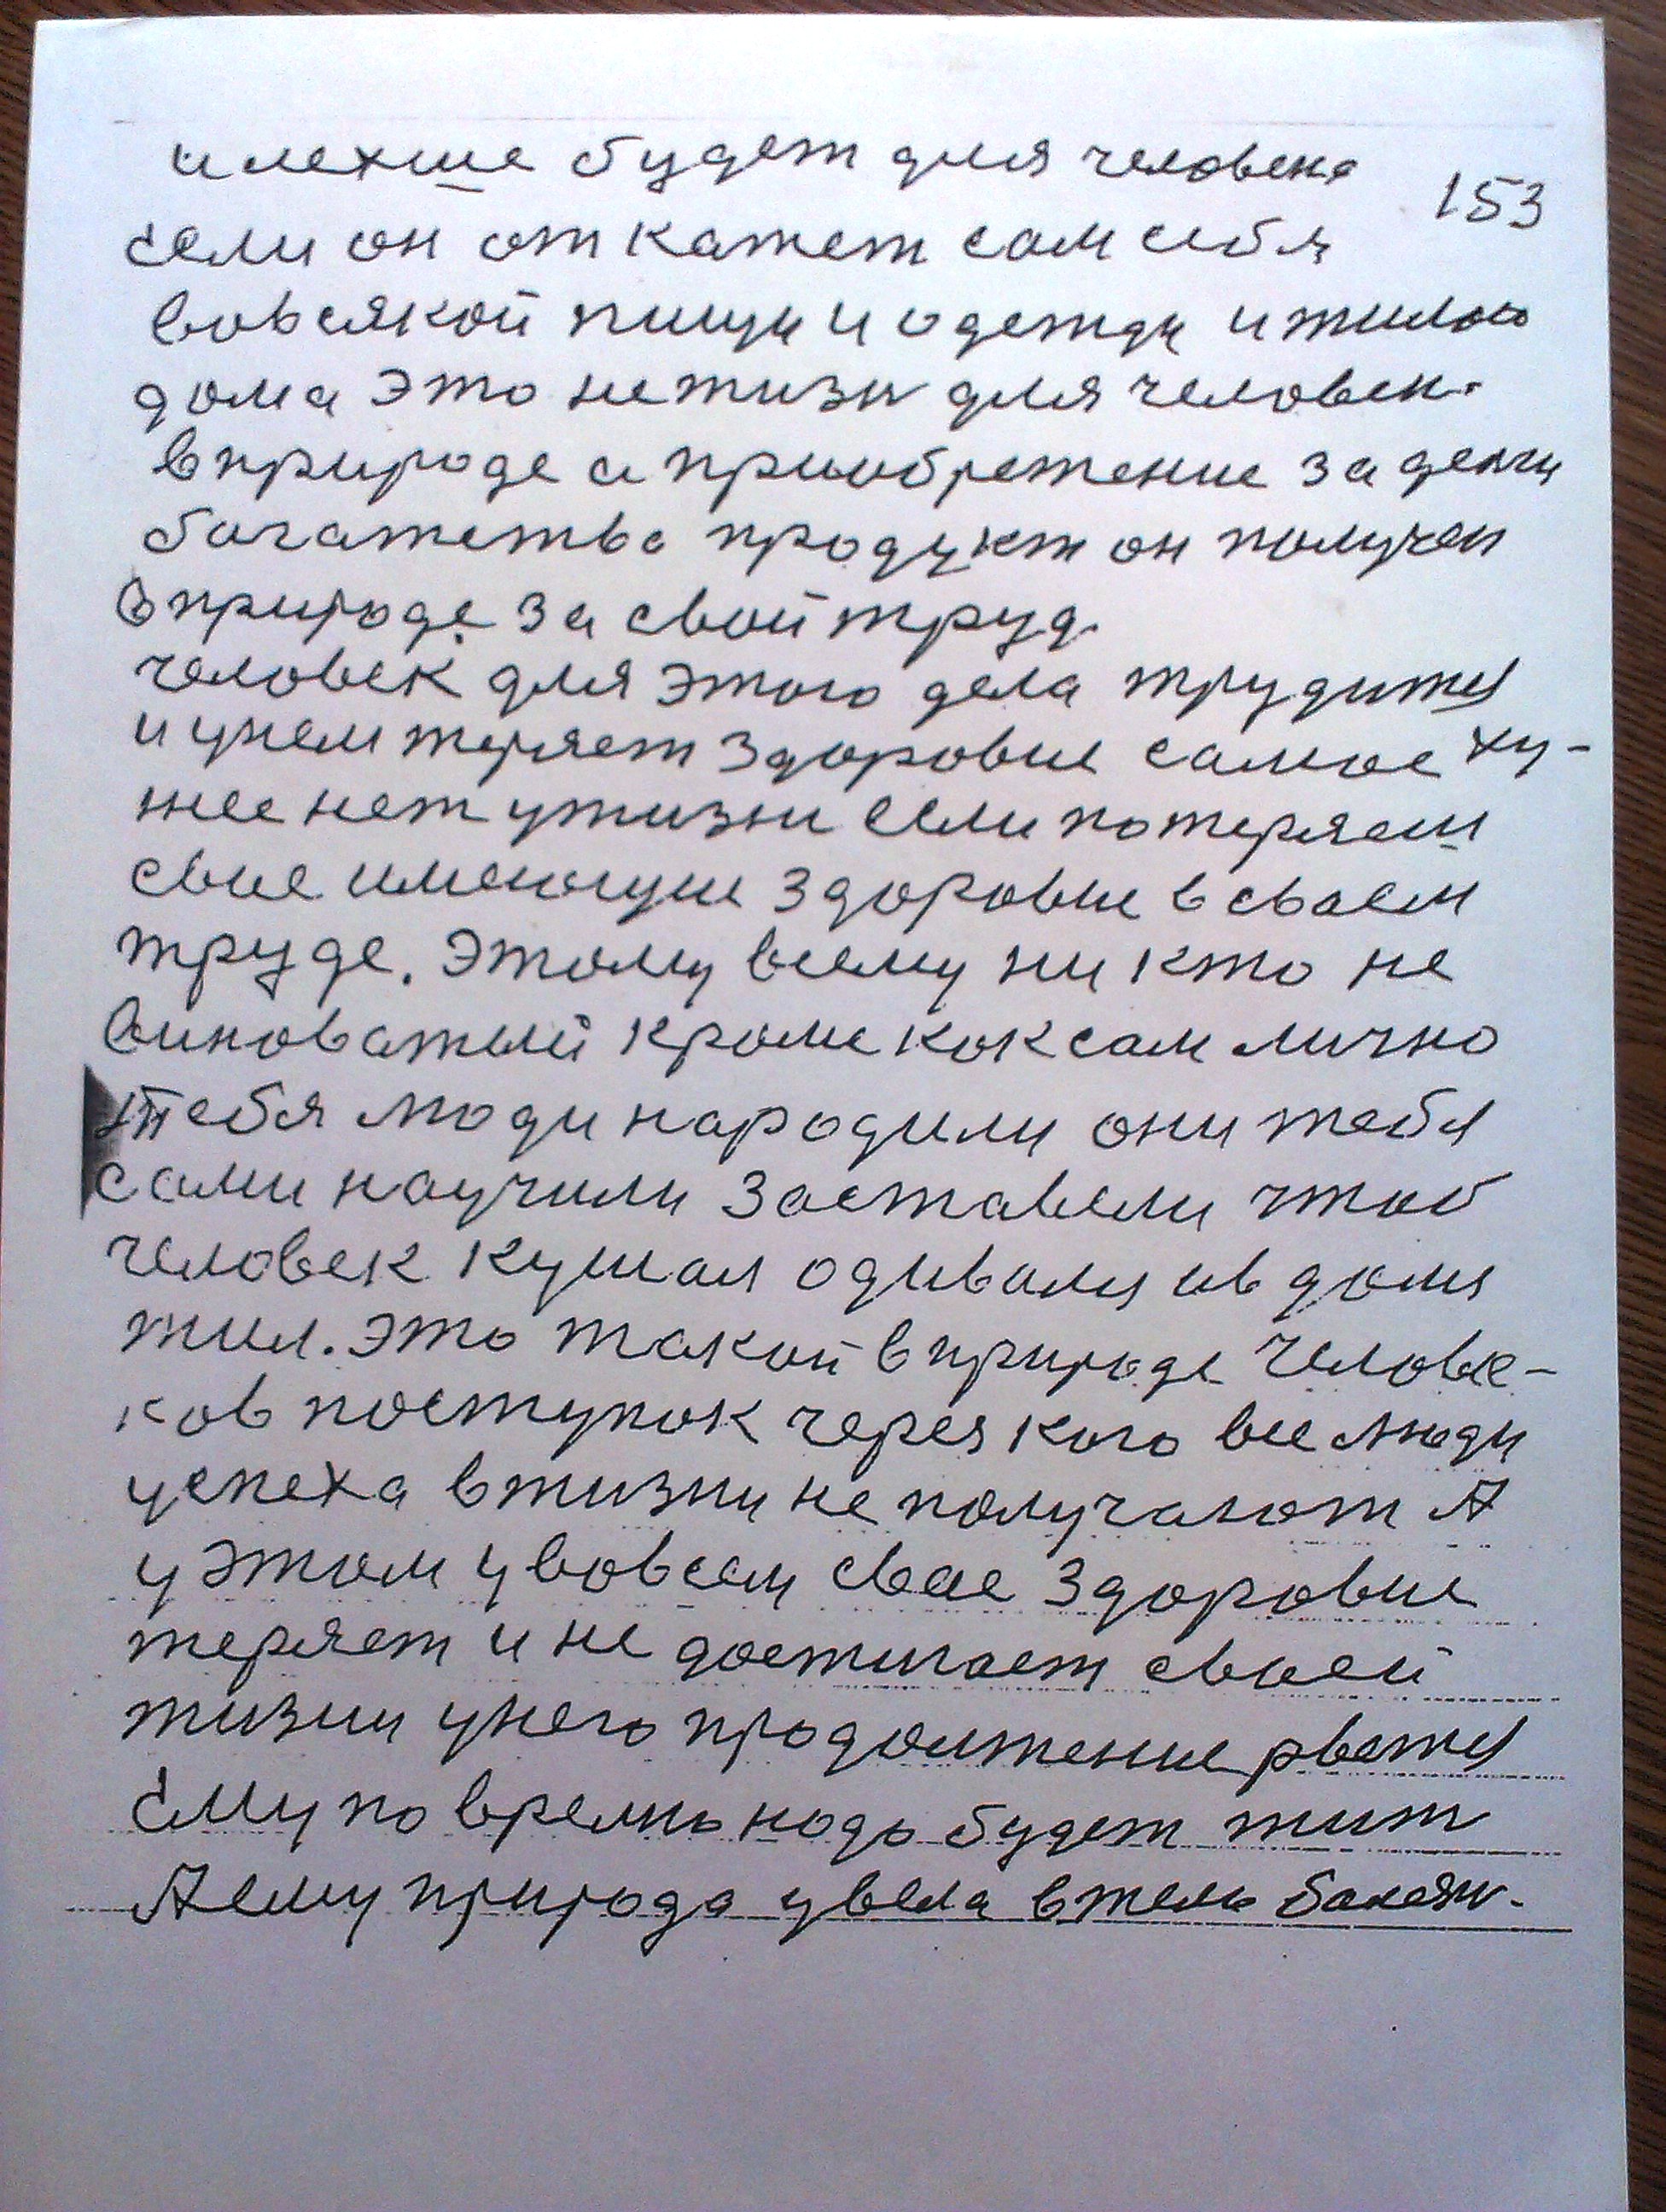 и лехше будет для человека
153
если он откажет сам себя
вовсякой пищи и одежди и жилого
дома это не жизн для человека
в природе а приобретение за денги
богатства продукт он получеи
в природе за свой труд.
человек для этого дела трудится
и у нем теряет здоровие самое ху-
жее нет у жизни если потеряеш
свие имеющие здоровие в своем
труде. Этому всему ни кто не
виноватый кроме как сам лично
тебя люди народили они тебя
сами научили заставели чтоб
человек кушал одивался и в доми
жил. Это такой в природе челове-
ков поступок через кого все люди
успеха в жизни не получают А
у этом у вовсем свое здоровие
теряет и не достигает своей
жизни у него продолжение рвется
Ему по времю надо будет жит
А ему природа увела в тело болезн.